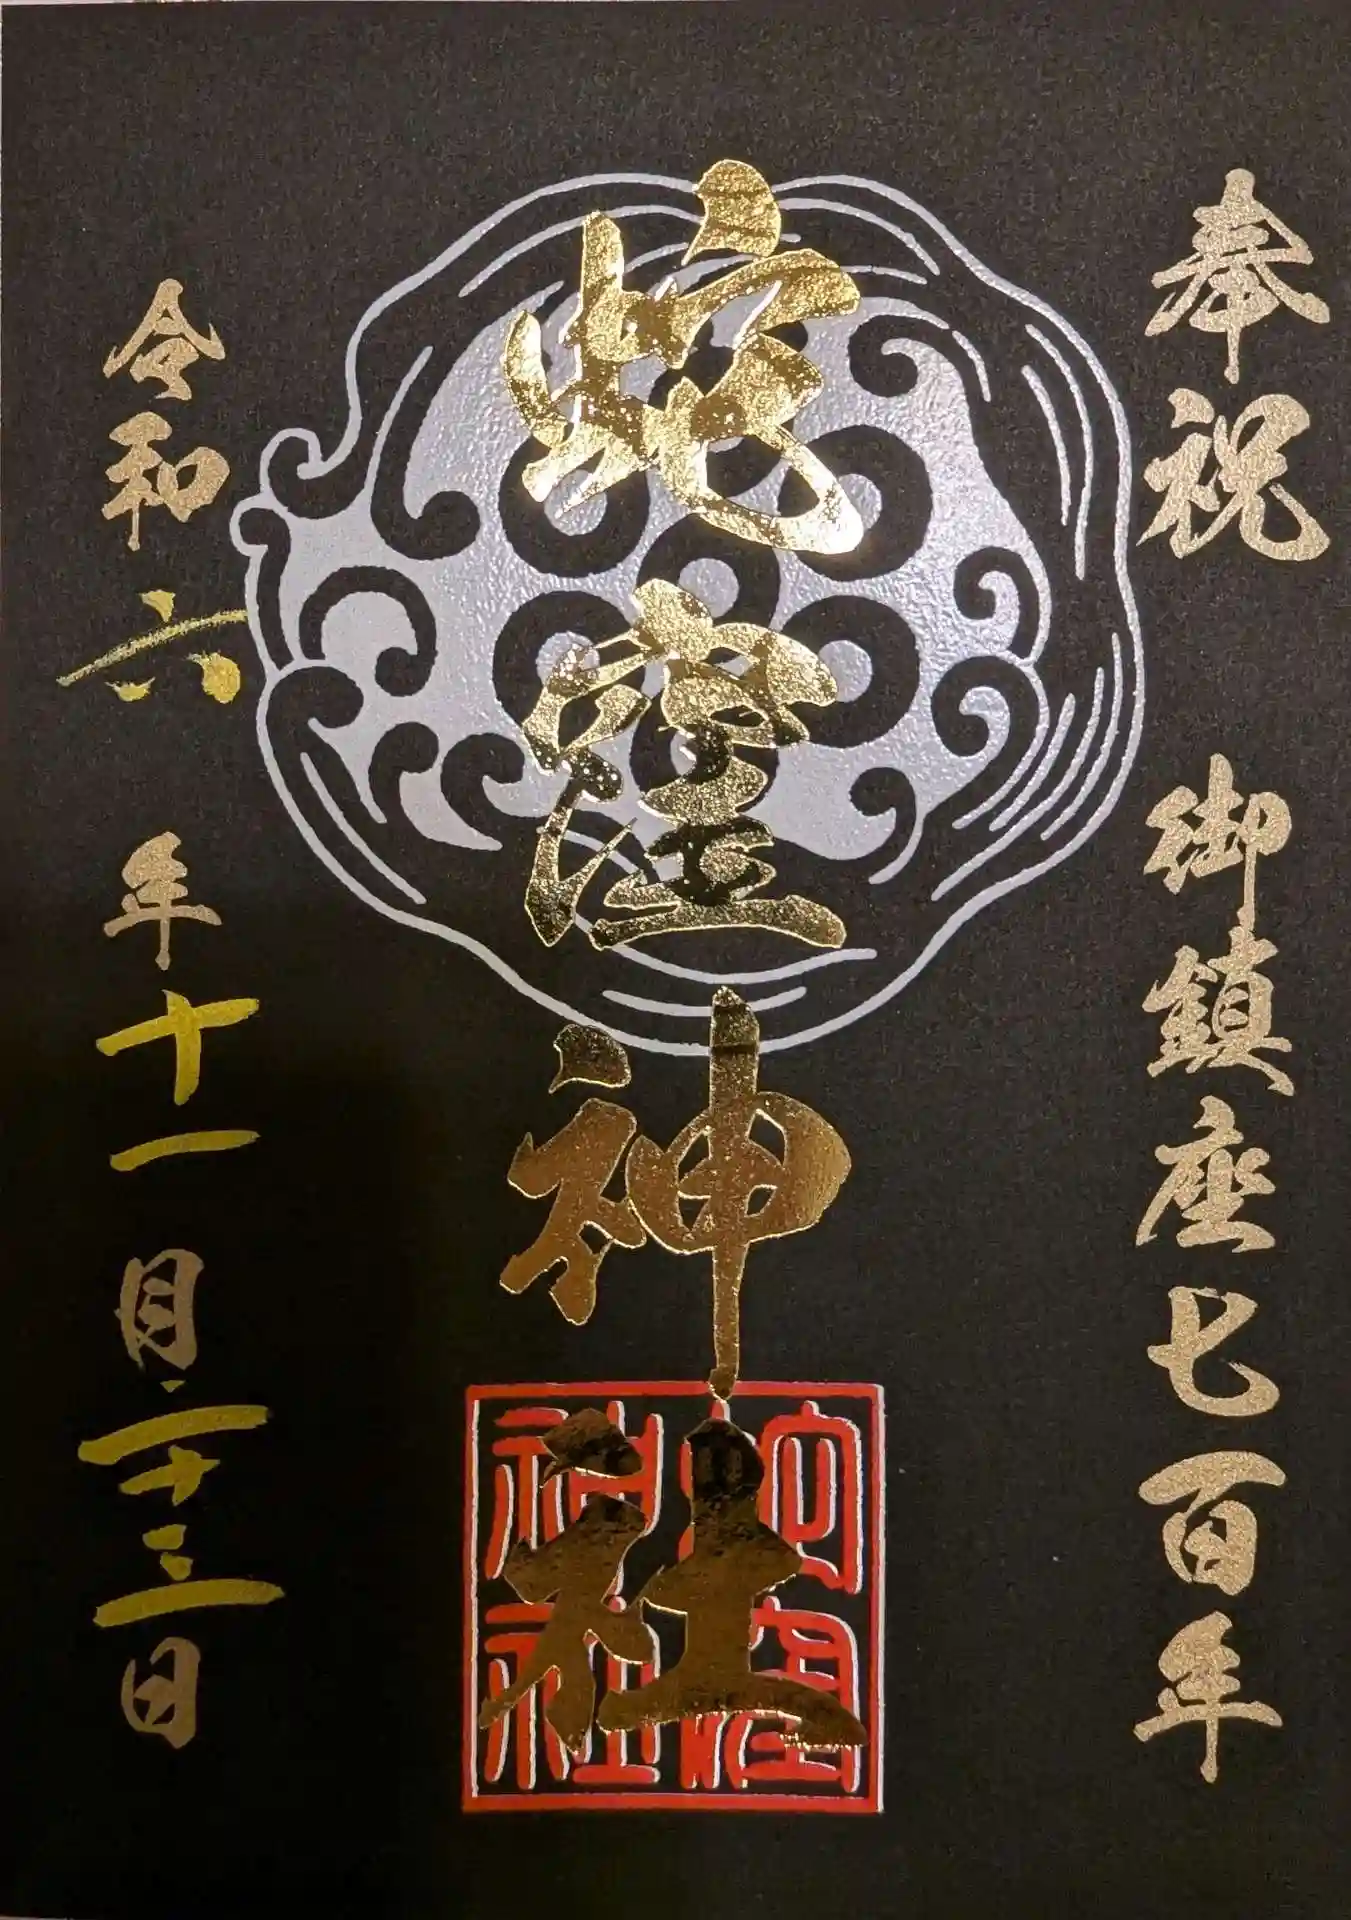 奉祝 御鎮座七百年
蛇窪神社
蛇窪
神社
令和六年十一月二十三日